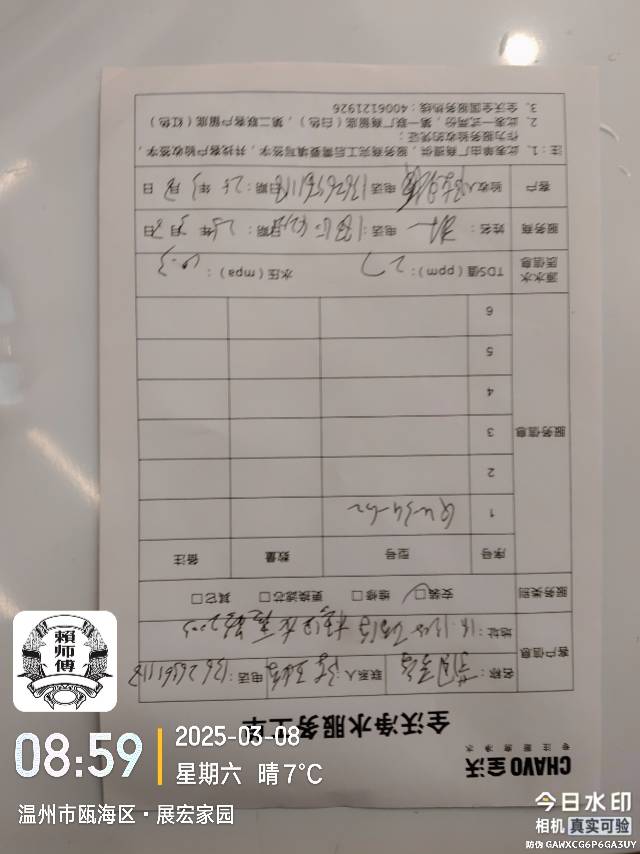 CHAVO 全沃
专注智慧净水
全沃净水服务工单
客户信息
名称：
联系人：
电话：13626561118
地址：
服务类别
安装☑ 维修□ 更换滤芯□ 其它□
服务信息
序号 型号 数量 备注
1
2
3
4
5
6
源水水质信息
TDS值（ppm）：27 水压（mpa）：0.3
服务商
姓名： 电话： 日期：25年3月8日
客户
验收人： 电话：13626561118 日期：25年3月8日
注：1、此表单由厂商提供，服务商完工后需要填写签字，并找客户验收签字，
作为服务验收的凭证；
2、此表一式两份，第一联厂商留底（白色），第二联客户留底（红色）
3、全沃全国服务热线：4006121926
賴师傅
08:59
2025-03-08
星期六 晴 7℃
温州市瓯海区·展宏家园
今日水印
相机 真实可验
防伪 GAWXCG6P6GA3UY